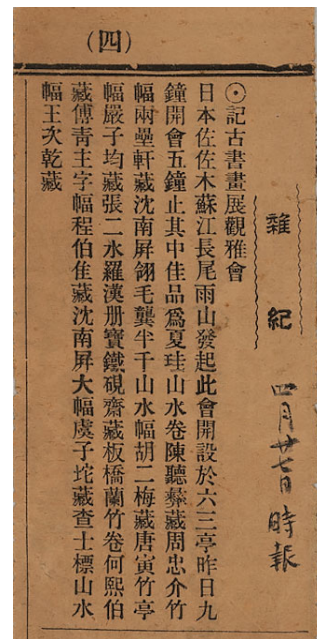 (四)
雜紀
四月廿七日 時報
⊙記古書畫展觀雅會
日本佐佐木蘇江長尾雨山發起此會開設於六三亭昨日九
鐘開會五鐘止其中佳品爲夏珪山水卷陳聽彝藏周忠介竹
幅兩罍軒藏沈南屏翎毛龔半千山水幅胡二梅藏唐寅竹亭
幅嚴子均藏張二水羅漢册寶鐵硯齋藏板橋蘭竹卷何熙伯
藏傅靑主字幅程伯隹藏沈南屏大幅虞子坨藏查士標山水
幅王氶乾藏